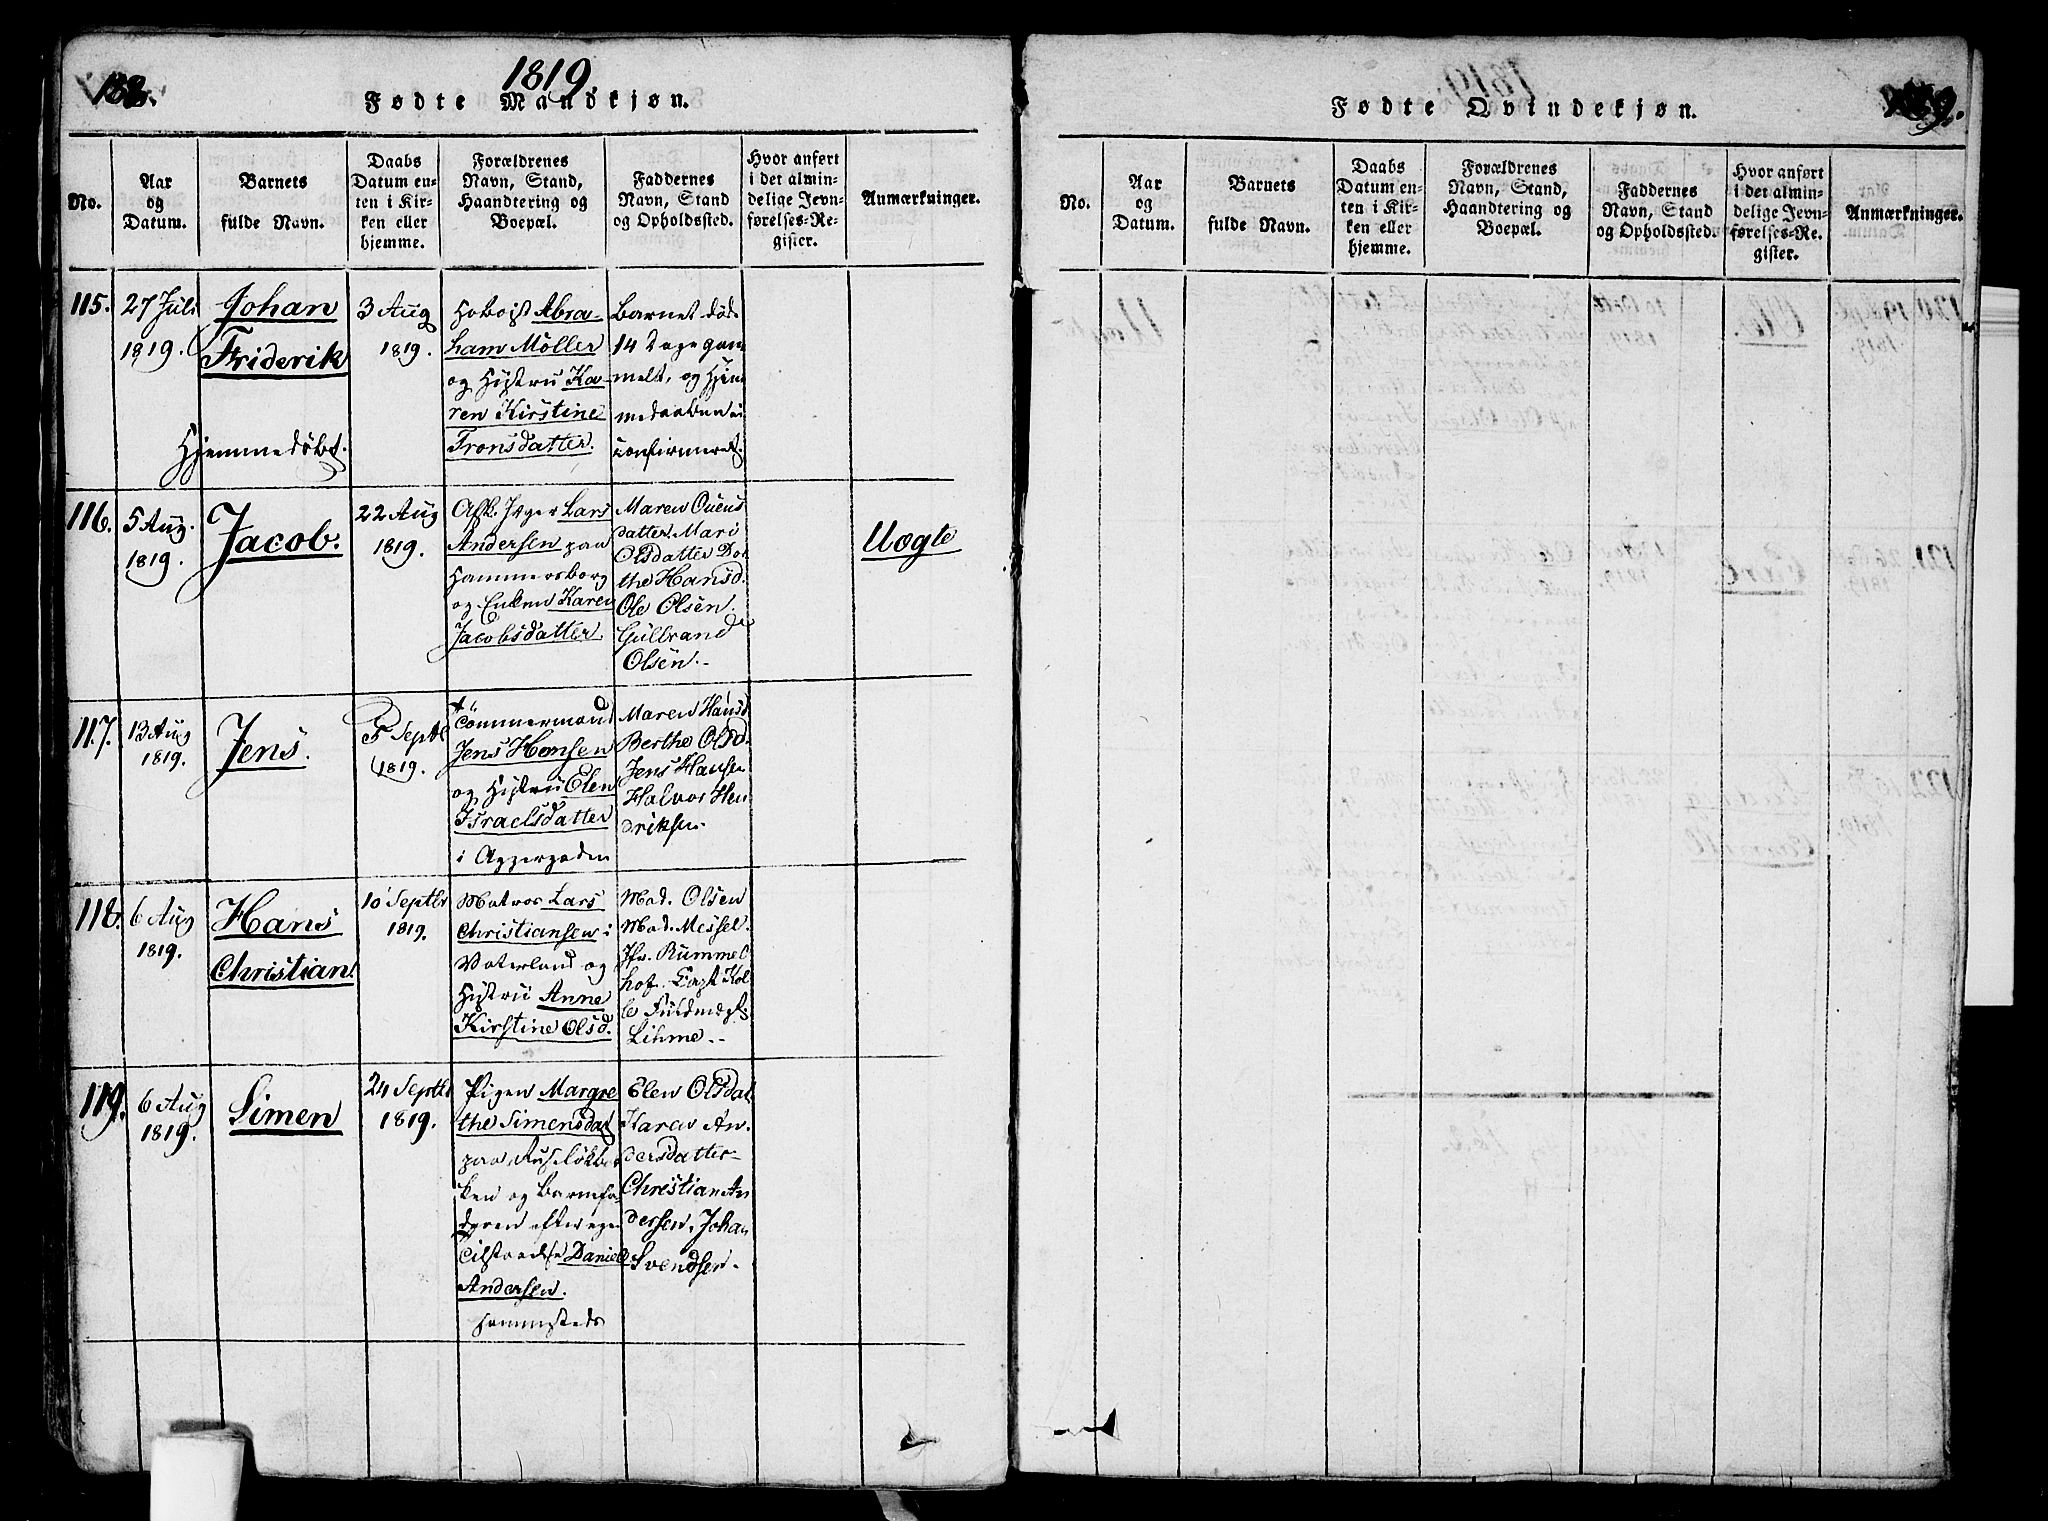 1819
Fødte Mandkjøn.
No.
Aar
og
Datum.
Barnets
fulde Navn.
Daabs
Datum en-
ten i Kir-
ken eller
hjemme.
Forældrenes
Navn, Stand,
Haandtering og
Boepæl.
Faddernes
Navn, Stand
og Opholdssted.
Hvor anført
i det almin-
delige Jevn-
førelses-Re-
gister.
Anmærkninger.
115.
27 Juli
1819.
Johan
Friderik
Hjemmedøbt.
3 Aug
1819.
Hoboist Abra-
ham Möller
og Hustru Ka-
ren Kirstine
Tronsdatter.
Barnet död
14 Dage gam
melt, og Hjem
medaaben ei
confirmeret.
116.
5 Aug.
1819.
Jacob.
22 Aug
1819.
Afsk. Jæger Lars
Andersen paa
Hammersborg
og Enken Karen
Jacobsdatter.
Maren Ouens
datter Mari
Olsdatter Dor
the Hansd.
Ole Olsen.
Gulbrand
Olsen.
Uægte
117.
13 Aug
1819.
Jens.
5 Septbr
1819.
Tömmermand
Jens Hansen
og Hustru Elen
Israelsdatter
i Aggergaden
Maren Hansd
Berthe Olsd.
Jens Hansen
Halvor Hen
driksen.
118.
6 Aug
1819.
Hans
Christian.
10 Septbr
1819.
Matros Lars
Christiansen i
Vaterland og
Hustru Anne
Kirstine Olsd.
Mad. Olsen
Mad. Messel.
Jfr. Rummel
hof. Capt Kol
be Fuldmægt
Lihme.
119.
6 Aug
1819.
Simen
24 Septbr
1819.
Pigen Margre
the Simensdat
paa Ruseløkbak
ken og Barnefa
deren efter egen
Tilstaaelse Daniel
Andersen.
sammesteds
Elen Olsdat.
Karen An
dersdatter
Christian An
dersen, Johan
Svendsen.
Fødte Qvindekjøn.
No.
Aar
og
Datum.
Barnets
fulde Navn.
Daabs
Datum en-
ten i Kir-
ken eller
hjemme.
Forældrenes
Navn, Stand,
Haandtering og
Boepæl.
Faddernes
Navn, Stand
og Opholdssted.
Hvor anført
i det almin-
delige Jevn-
førelses-Re-
gister.
Anmærkninger.